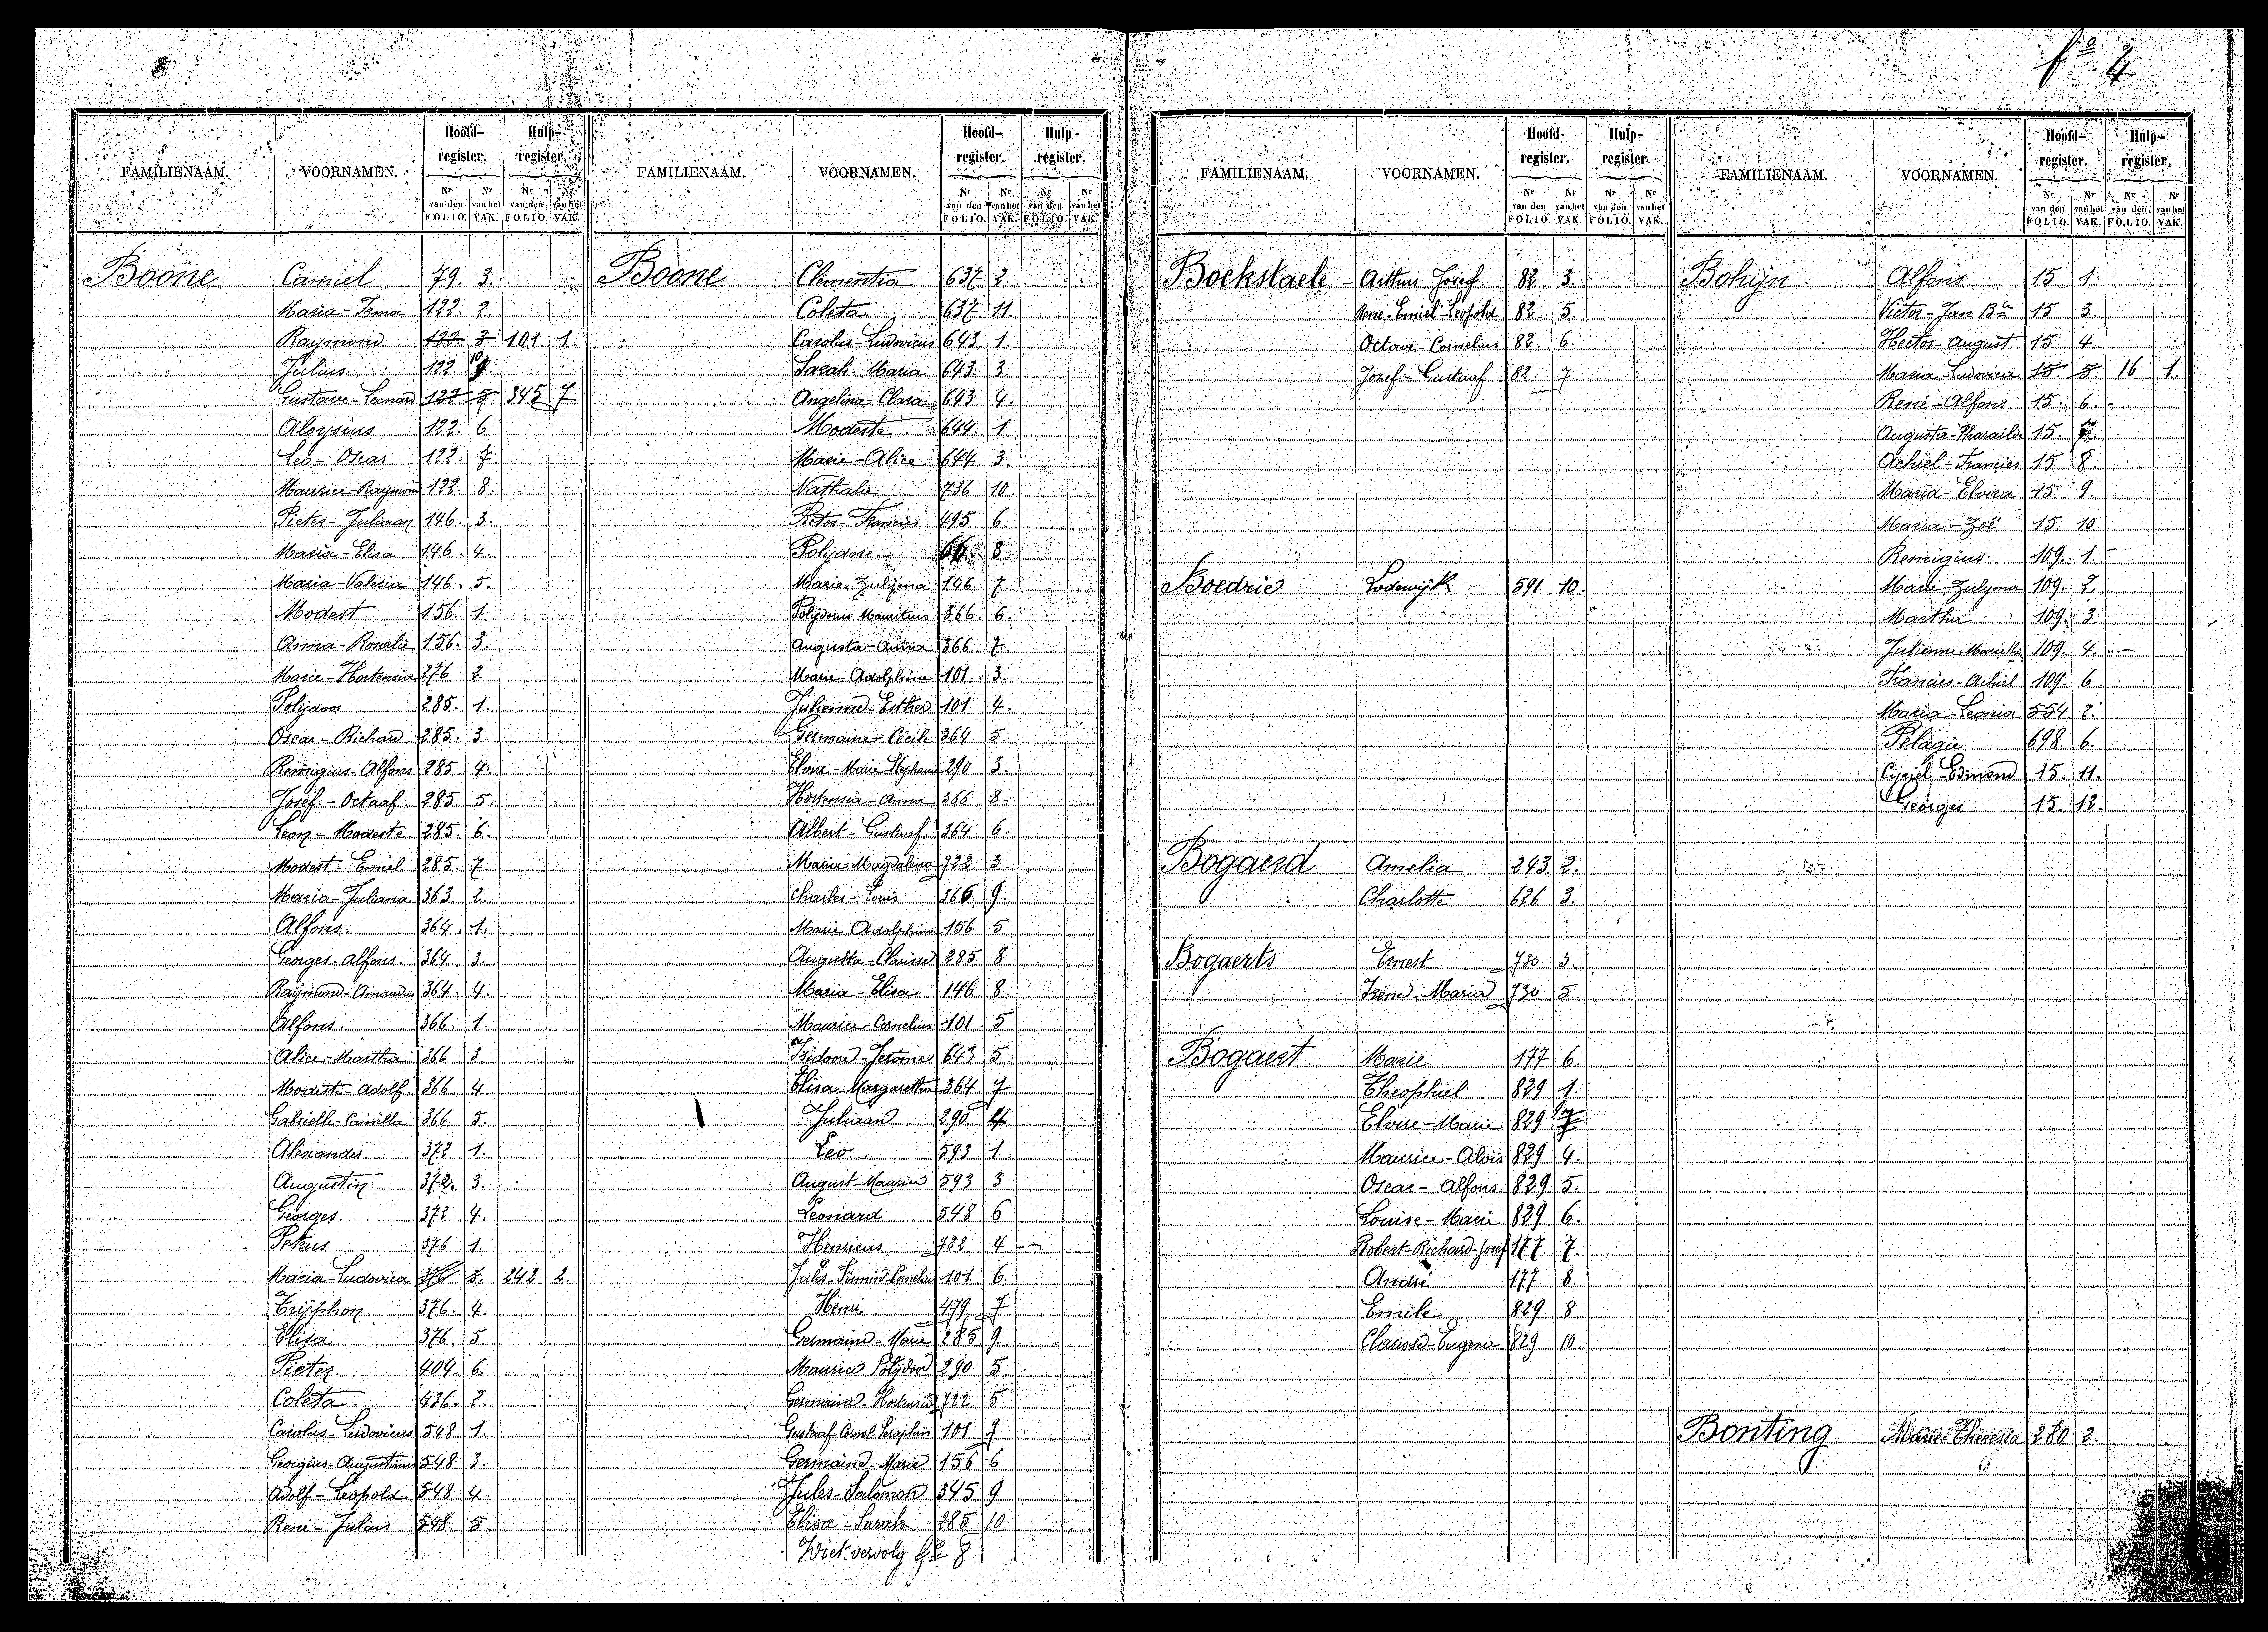 fº 4
FAMILIENAAM. VOORNAMEN. Hoofd-register. Hulp-register.
Nr van den FOLIO. Nr van het VAK. Nr van den FOLIO. Nr van het VAK.
Boone Camiel 79. 3.
Maria-Irma 122. 2.
Raymond 122 3 101 1.
Julius 122 10
Gustave-Leonard 122 5. 345 7
Aloysius 122. 6.
Leo-Oscar 122. 7.
Maurice-Raymond 122. 8.
Pieter-Juliaan 146. 3.
Maria-Elisa 146. 4.
Maria-Valeria 146. 5.
Modest 156. 1.
Anna-Rosalie 156. 3.
Marie-Hortensia 276 2.
Polijdoor 285. 1.
Oscar-Richard 285. 3.
Remigius-Alfons 285 4.
Josef-Octaaf 285. 5.
Leon-Modeste 285. 6.
Modest-Emiel 285. 7.
Maria-Juliana 363. 2.
Alfons. 364. 1.
Georges-Alfons 364. 3.
Raymond-Amandus 364. 4.
Alfons 366. 1.
Alice-Martha 366 3
Modeste-Adolf 366 4
Gabrielle-Camilla 366 5.
Alexander 372 1.
Augustin 372. 3.
Georges. 372 4.
Petrus 376 1.
Maria-Ludovica 376 3. 242 2.
Trijphon 376. 4.
Elisa 376. 5.
Pieter 404. 6.
Coleta 436. 2.
Carolus-Ludovicus 548 1.
Georgius-Augustinus 548 3.
Adolf-Leopold 548 4.
René-Julius 548. 5.
FAMILIENAAM. VOORNAMEN. Hoofd-register. Hulp-register.
Nr van den FOLIO. Nr van het VAK. Nr van den FOLIO. Nr van het VAK.
Boone Clementia 637 2.
Coleta 637 11.
Carolus-Ludovicus 643 1.
Sarah-Maria 643 3.
Angelina-Clara 643 4.
Modeste 644. 1
Marie-Alice 644 3
Nathalie 736 10.
Pieter-Francies 495 6
Polijdore 66 8
Marie Zulijma 146 7.
Polijdorus Mauritius 366. 6.
Augusta-Anna 366 7.
Marie-Adolphine 101. 3.
Julienne-Esther 101 4.
Germaine-Cécile 364 5.
Elvire-Marie Stephanie 290 3.
Hortensia-Anna 366 8.
Albert-Gustaaf 364 6.
Maria-Magdalena 722 3.
Charles-Louis 366 9.
Marie Adolphine 156 5
Augusta-Clarisse 285 8
Maria-Elisa 146 8.
Maurice-Cornelius 101 5
Isidoore-Jerome 643 5
Elisa-Margaretha 364 7
Juliaan 290 4
Leo 593 1
August-Maurice 593 3
Leonard 548 6
Henricus 722 4 -
Jules-Firmin-Cornelius 101 6.
Henri 479 7
Germaine-Marie 285 9
Maurice Polijdoor 290 5
Germaine-Hortensia 722 5
Gustaaf Cornel-Seraphin 101 7
Germaine-Marie 156 6
Jules-Salomon 345 9
Elisa-Sarah 285 10
Ziet vervolg fº 8
FAMILIENAAM. VOORNAMEN. Hoofd-register. Hulp-register.
Nr van den FOLIO. Nr van het VAK. Nr van den FOLIO. Nr van het VAK.
Bockstaele - Arthur Josef. 82. 3.
René-Emiel-Leopold 82. 5.
Octave-Cornelius 82. 6.
Jozef-Gustaaf 82. 7.
Boedrie Lodewijk 591 10.
Bogaerd Amelia 243 2.
Charlotte 626 3.
Bogaerts Ernest 730 3.
Irène-Maria 730 5.
Bogaert. Marie 177 6.
Theophiel 829 1.
Elvire-Marie 829
Maurice-Alois 829 4.
Oscar-Alfons 829 5.
Louise-Marie 829 6.
Robert-Richard-Josef 177. 7.
André 177 8.
Emile 829 8
Clarisse-Eugenie 829 10
FAMILIENAAM. VOORNAMEN. Hoofd-register. Hulp-register.
Nr van den FOLIO. Nr van het VAK. Nr van den FOLIO. Nr van het VAK.
Bohijn Alfons 15 1
Victor-Jan Bta 15 3
Hector-August 15 4
Maria-Ludovica 15 5. 16 1.
René-Alfons 15. 6.
Augusta-Pharailde 15. 7
Achiel-Francies 15 8.
Maria-Elvira 15 9.
Maria-Zoë 15 10.
Remigius 109. 1. -
Marie-Zulyma 109. 2.
Martha 109. 3
Julienne-Marie 109. 4. -
Francies-Achiel 109. 6
Maria-Leonia 554 2.
Pelagie 698. 6.
Cijriel-Edmond 15. 11.
Georges 15. 12.
Bonting Marie-Theresia 280 2.